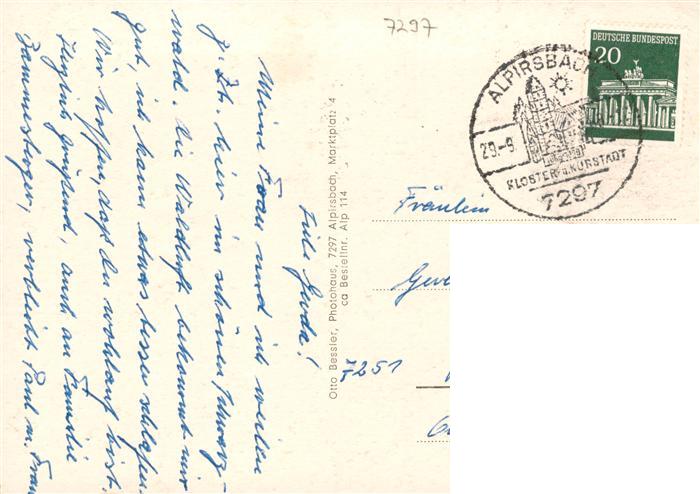 7297
DEUTSCHE BUNDESPOST
20
ALPIRSBACH
29.-9
KLOSTER- u. KURSTADT
7297
Fräulein
7251
Otto Bessler, Photohaus, 7297 Alpirsbach, Marktplatz 4
ca Bestellnr. Alp 114
Liebe Gerda!
Meine Frau und ich weilen
z. Zt. hier im schönen Schwarz-
wald. Die Waldluft bekommt mir
gut, ich kann etwas besser schlafen.
Wir hoffen, daß Du wohlauf bist.
Herzlich grüßend, auch an Familie
verbleibt Paul m. Frau